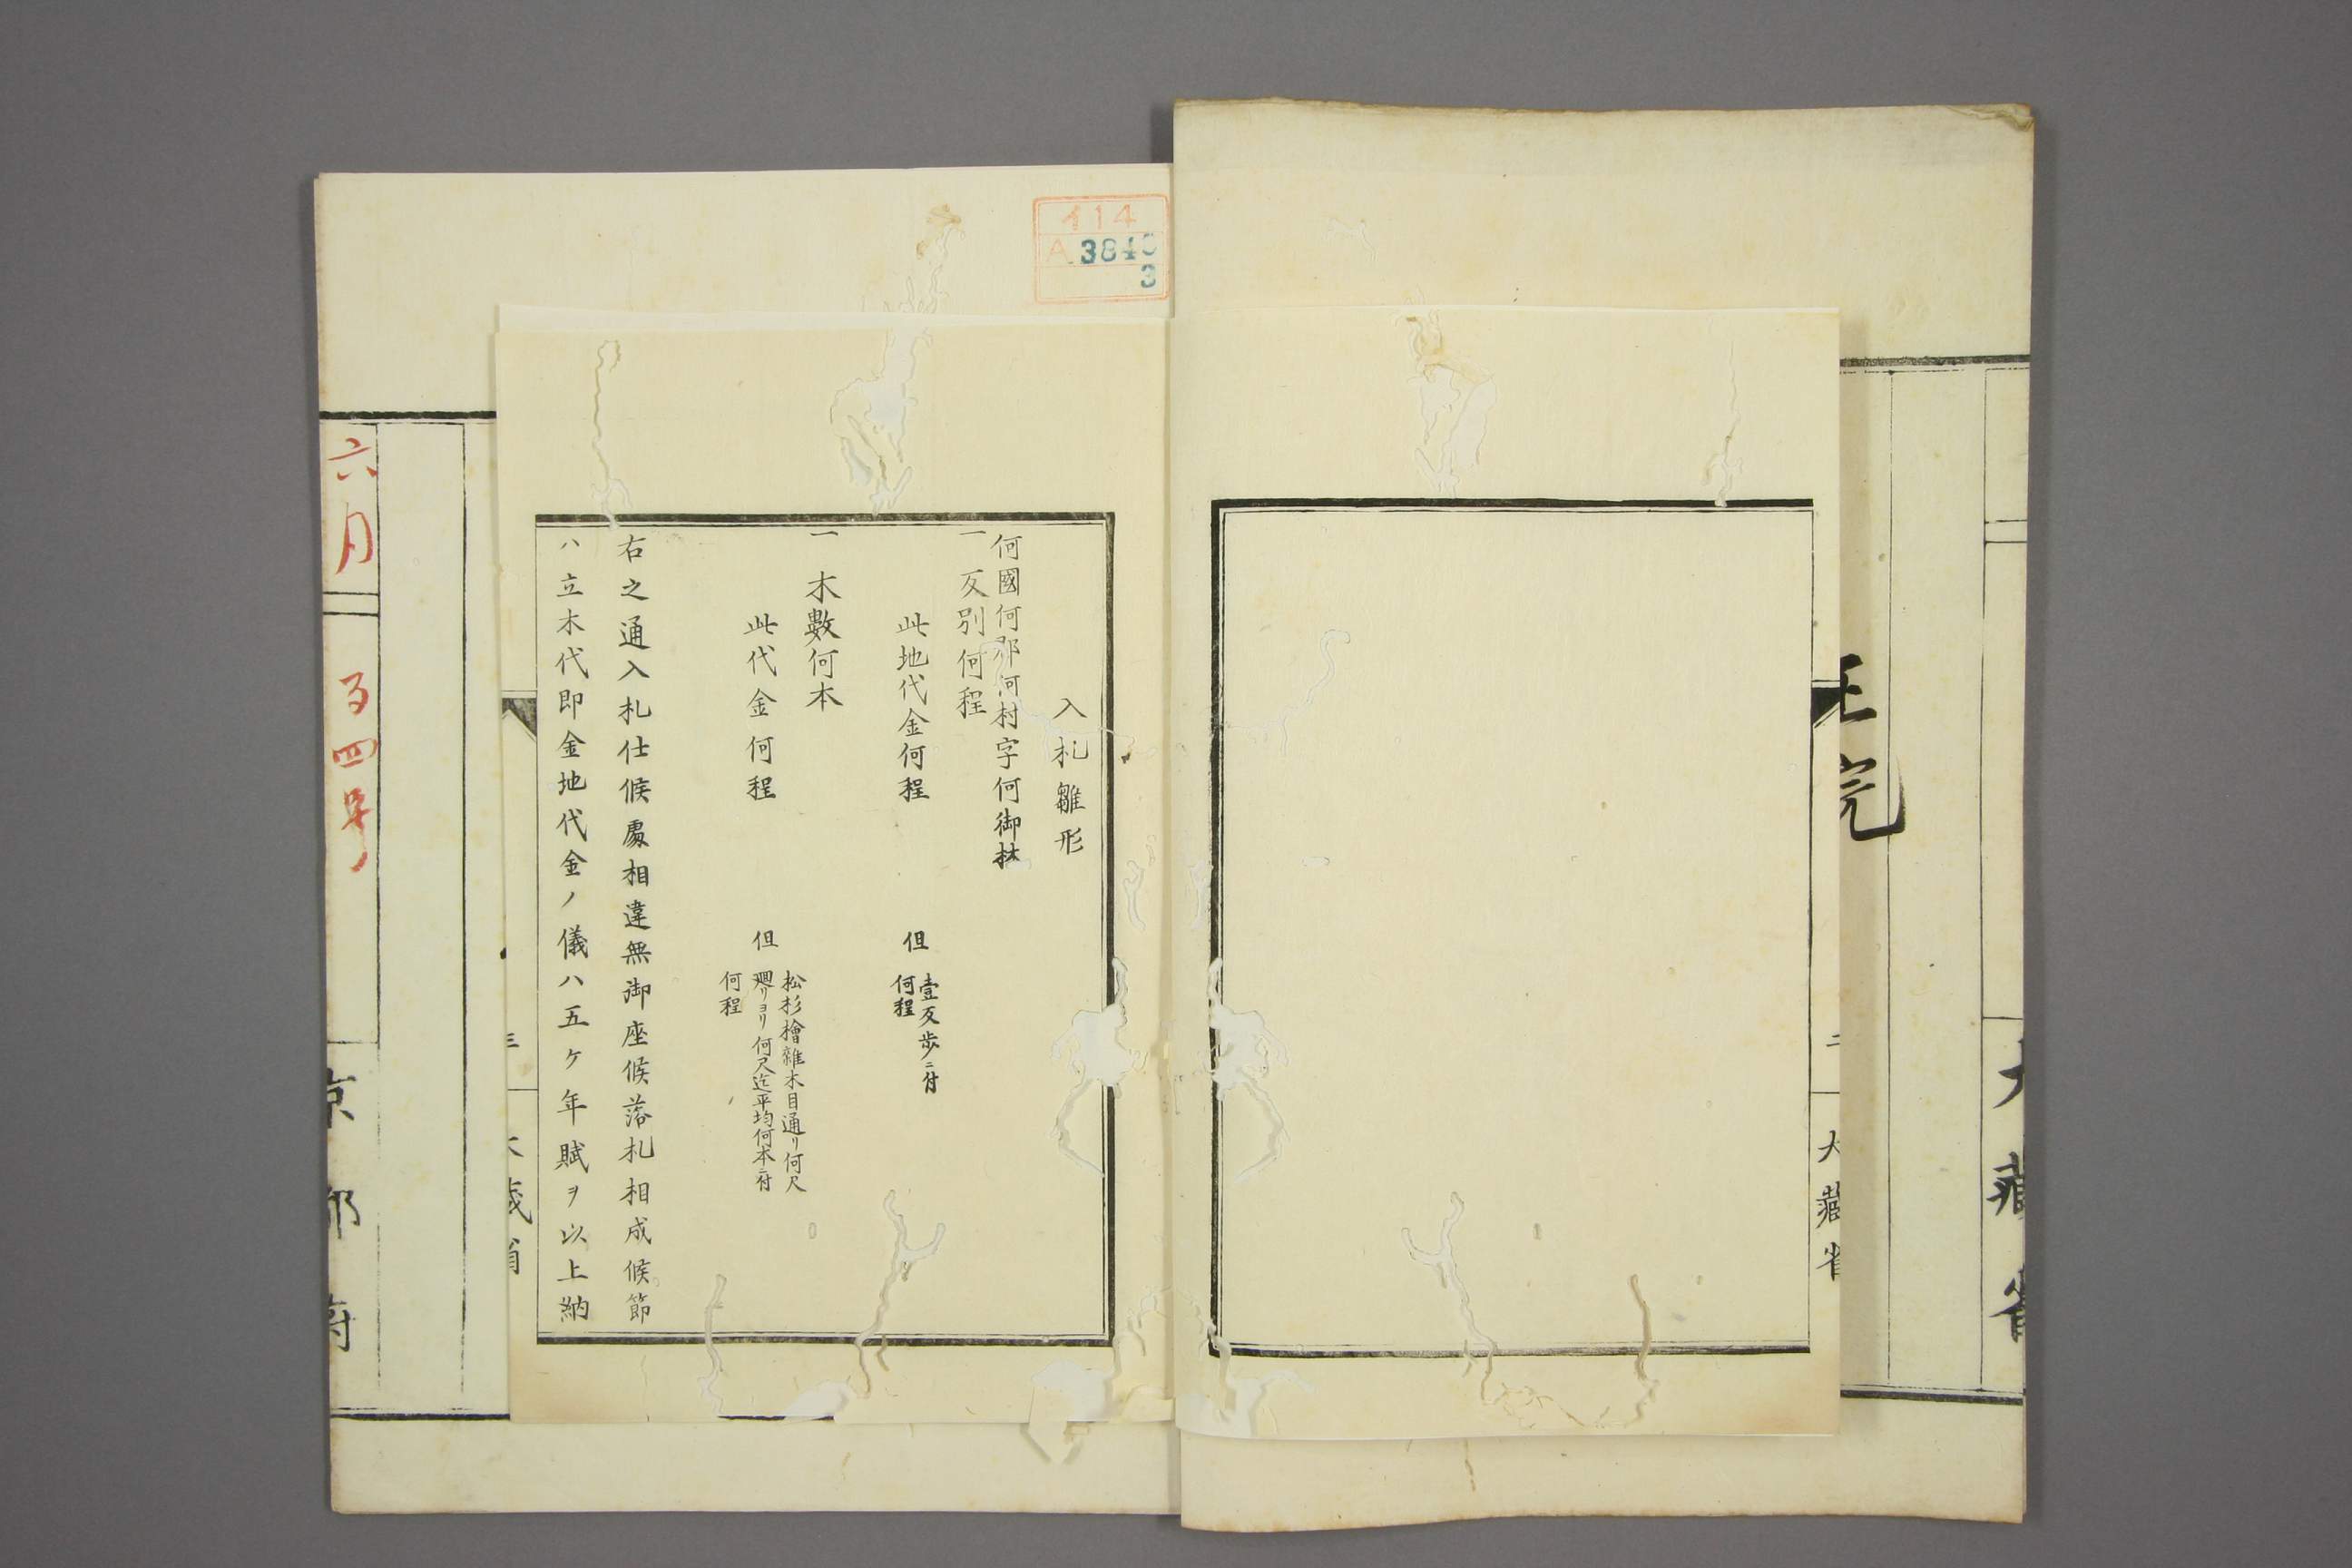 大藏省
二
大藏省
完
入札雛形
何國何郡何村字何御林
一反別何程
此地代金何程
但
壹反歩ニ付
何程
一木數何本
此代金何程
但
松杉檜雜木目通リ何尺
廻リヨリ何尺迄平均何本ニ付
何程
右之通入札仕候處相違無御座候落札相成候節
ハ立木代即金地代金ノ儀ハ五ケ年賦ヲ以上納
三
大藏省
六月
る四号
京都府
イ14
A3840
3